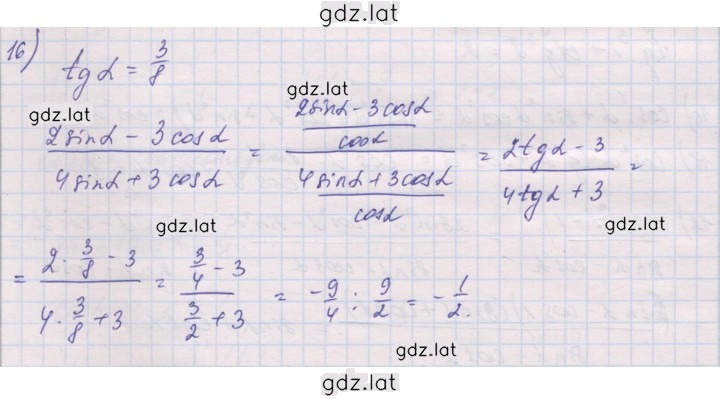 gdz.lat
16)
tg α = 3/8
gdz.lat
gdz.lat
(2sinα - 3cosα)/(4sinα + 3cosα) = ((2sinα - 3cosα)/cosα)/((4sinα + 3cosα)/cosα) = (2tgα - 3)/(4tgα + 3) =
gdz.lat
gdz.lat
= (2 · 3/8 - 3)/(4 · 3/8 + 3) = (3/4 - 3)/(3/2 + 3) = -9/4 : 9/2 = -1/2.
gdz.lat
gdz.lat